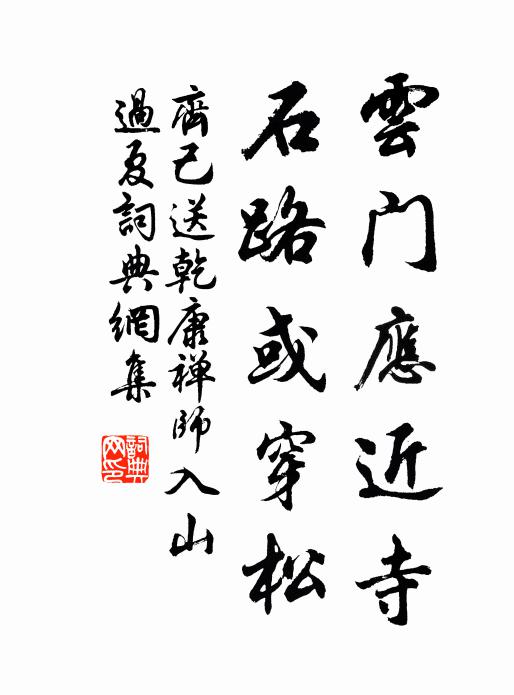 雲門應近寺
石路或穿松
齊己送乾康禅師入山
過夏詞典網集
詞典网印